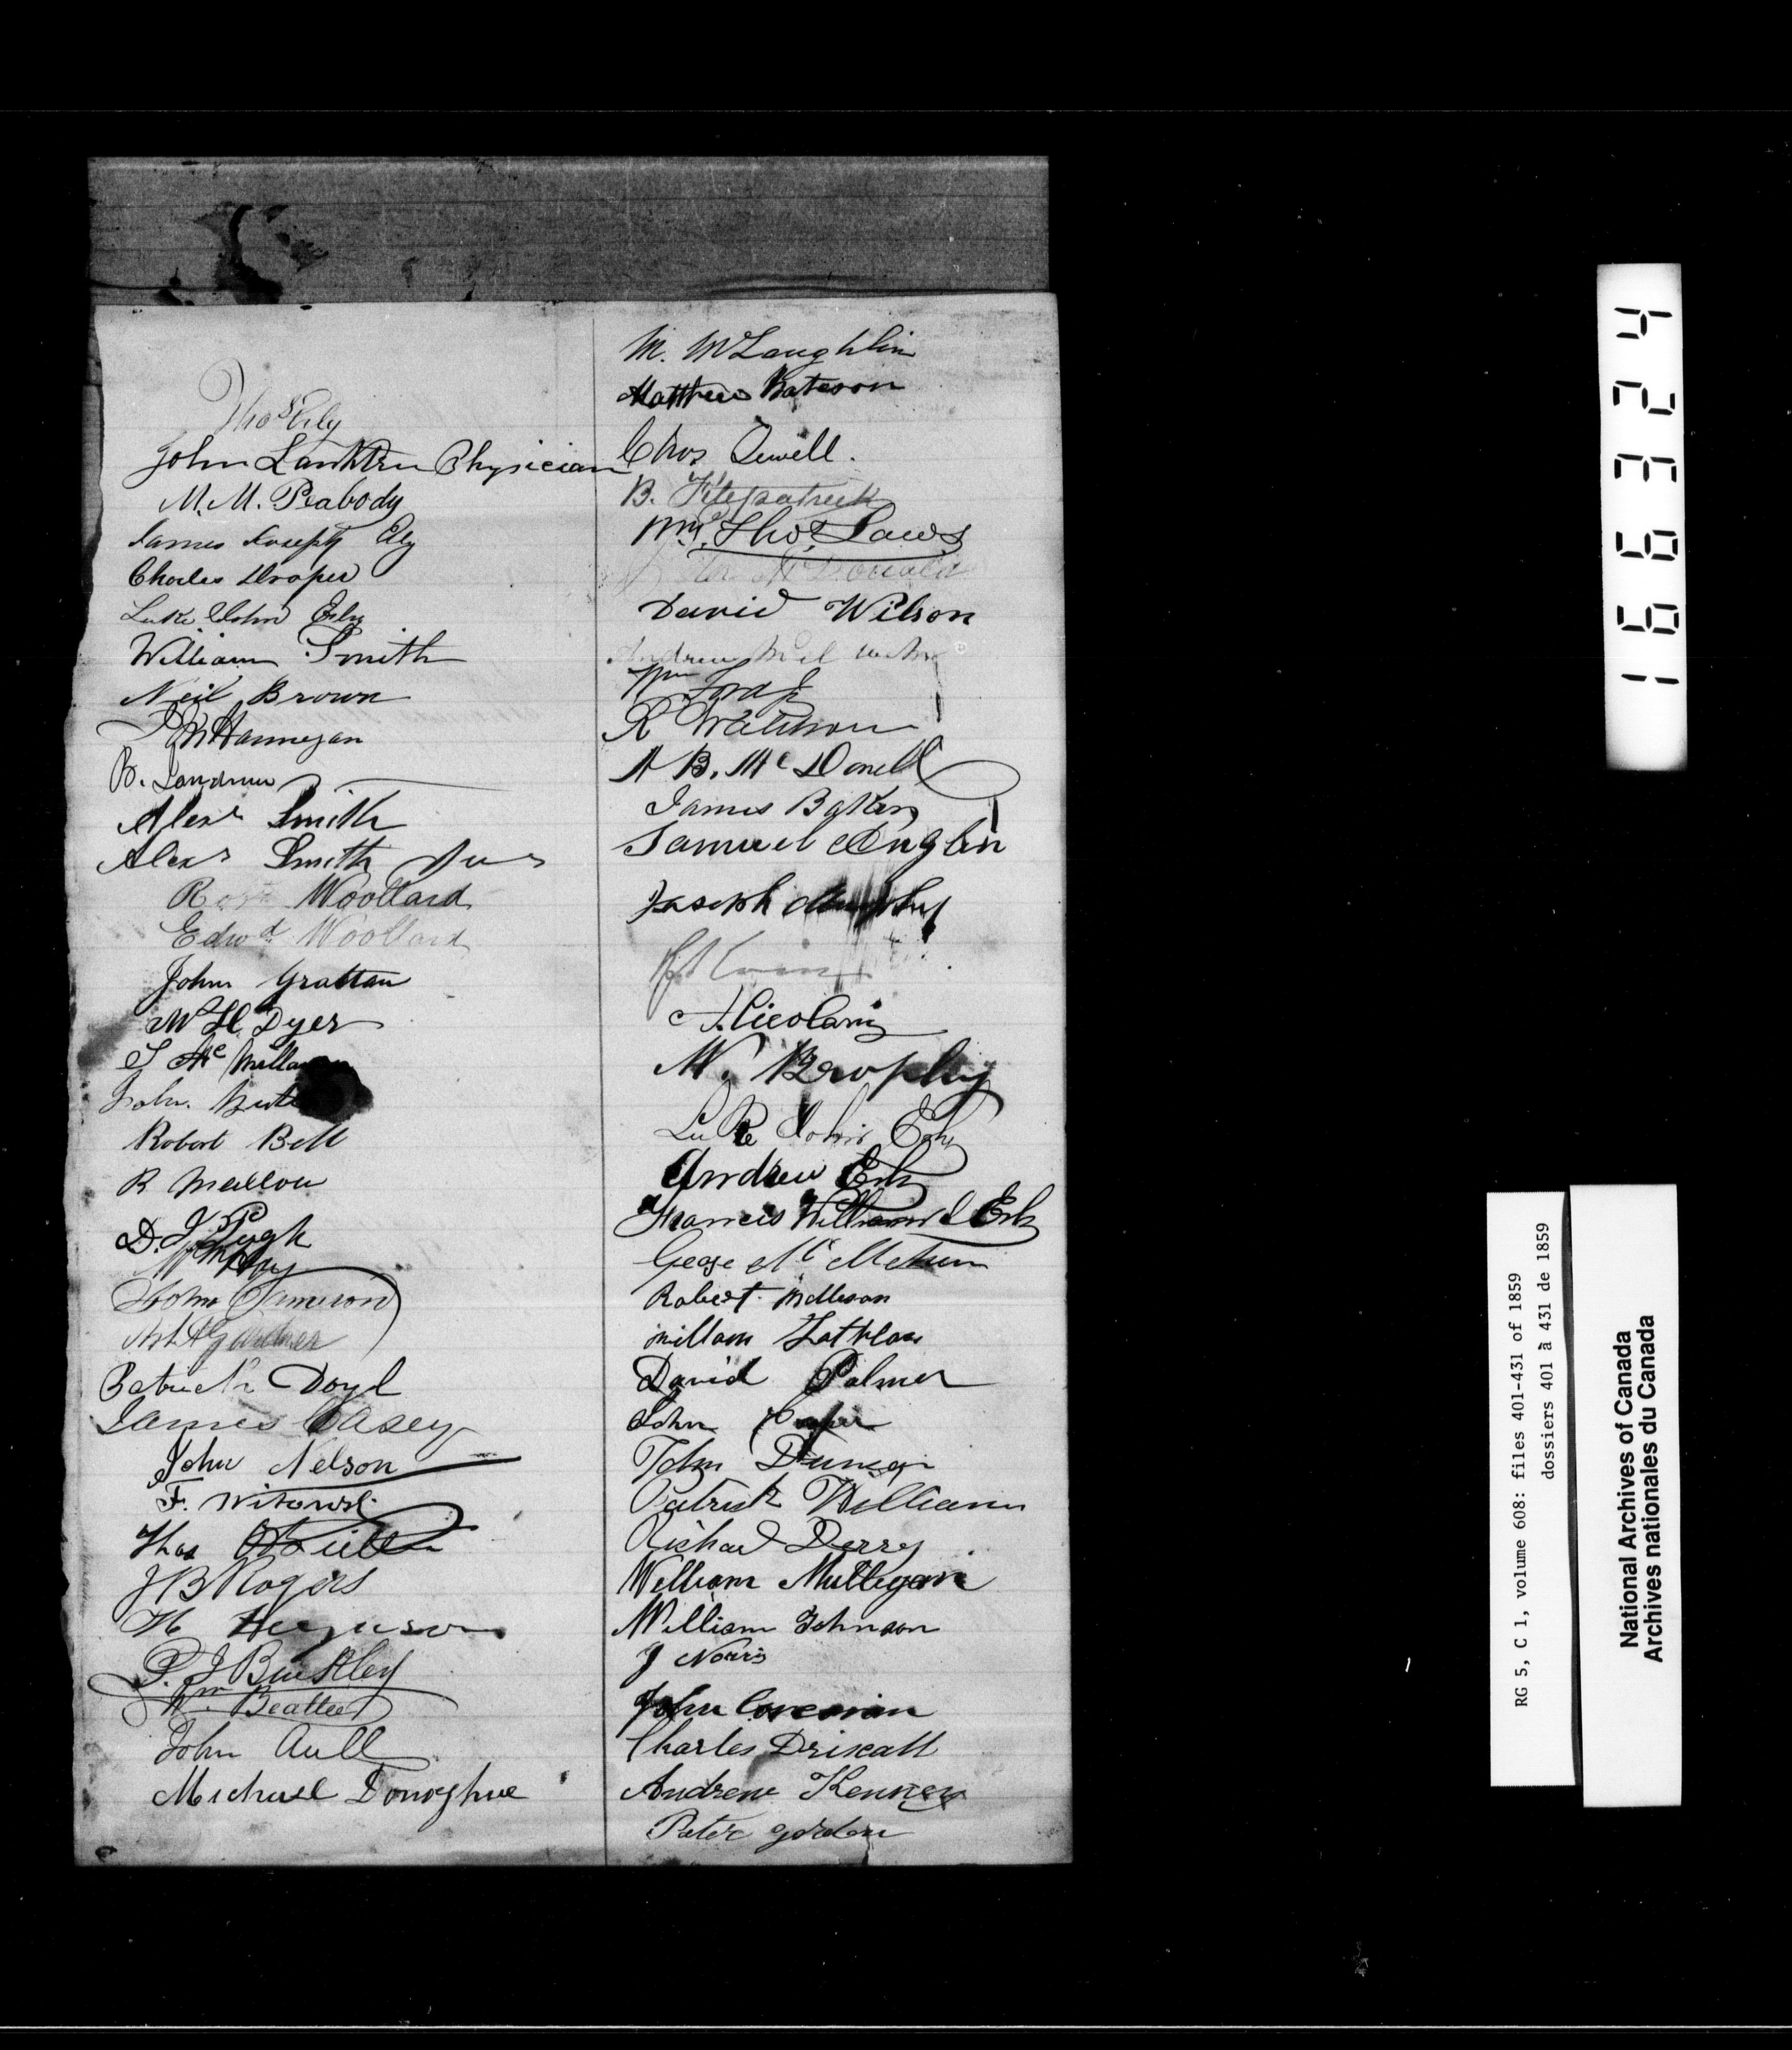 Thos Erly
John Lanktree Physician
M. M. Peabody
James Joseph Erly
Charles Draper
Luke John Erly
William Smith
Neil Brown
Hannegan
B.
Alexr Smith
Alexr Smith Jur
Woollard
Edwd Woollard
John Grattan
W H Dyer
Mc
John
Robert Bell
R Mellon
D. J. Pugh
John Jameson
Gardner
Patrick Doyl
James Casey
John Nelson
F.
Thos O'Neill
J B Rogers
H Ferguson
P. J Buckley
Wm Beattie
John Aull
Michael Donoghue
M. McLaughlin
Matthew Bateson
Chas Sewell.
B. Fitzpatrick
Wm Thos Laws
McDonald
David Wilson
Andrew
Wm
R Wallison
A B. Mc Donell
James Baker
Samuel Anglin
Joseph Murphy
W. Brophy
Luke John Erly
Andrew Erly
Francis William Erly
George Mc
Robert
William
David Palmer
John
John Duncan
Patrick William
Richard Derry
William Mulligan
William Johnson
J Norris
John Corcoran
Charles Driscall
Andrew Kenney
Peter Gordon
166324
RG 5, C 1, volume 608: files 401-431 of 1859
dossiers 401 à 431 de 1859
National Archives of Canada
Archives nationales du Canada